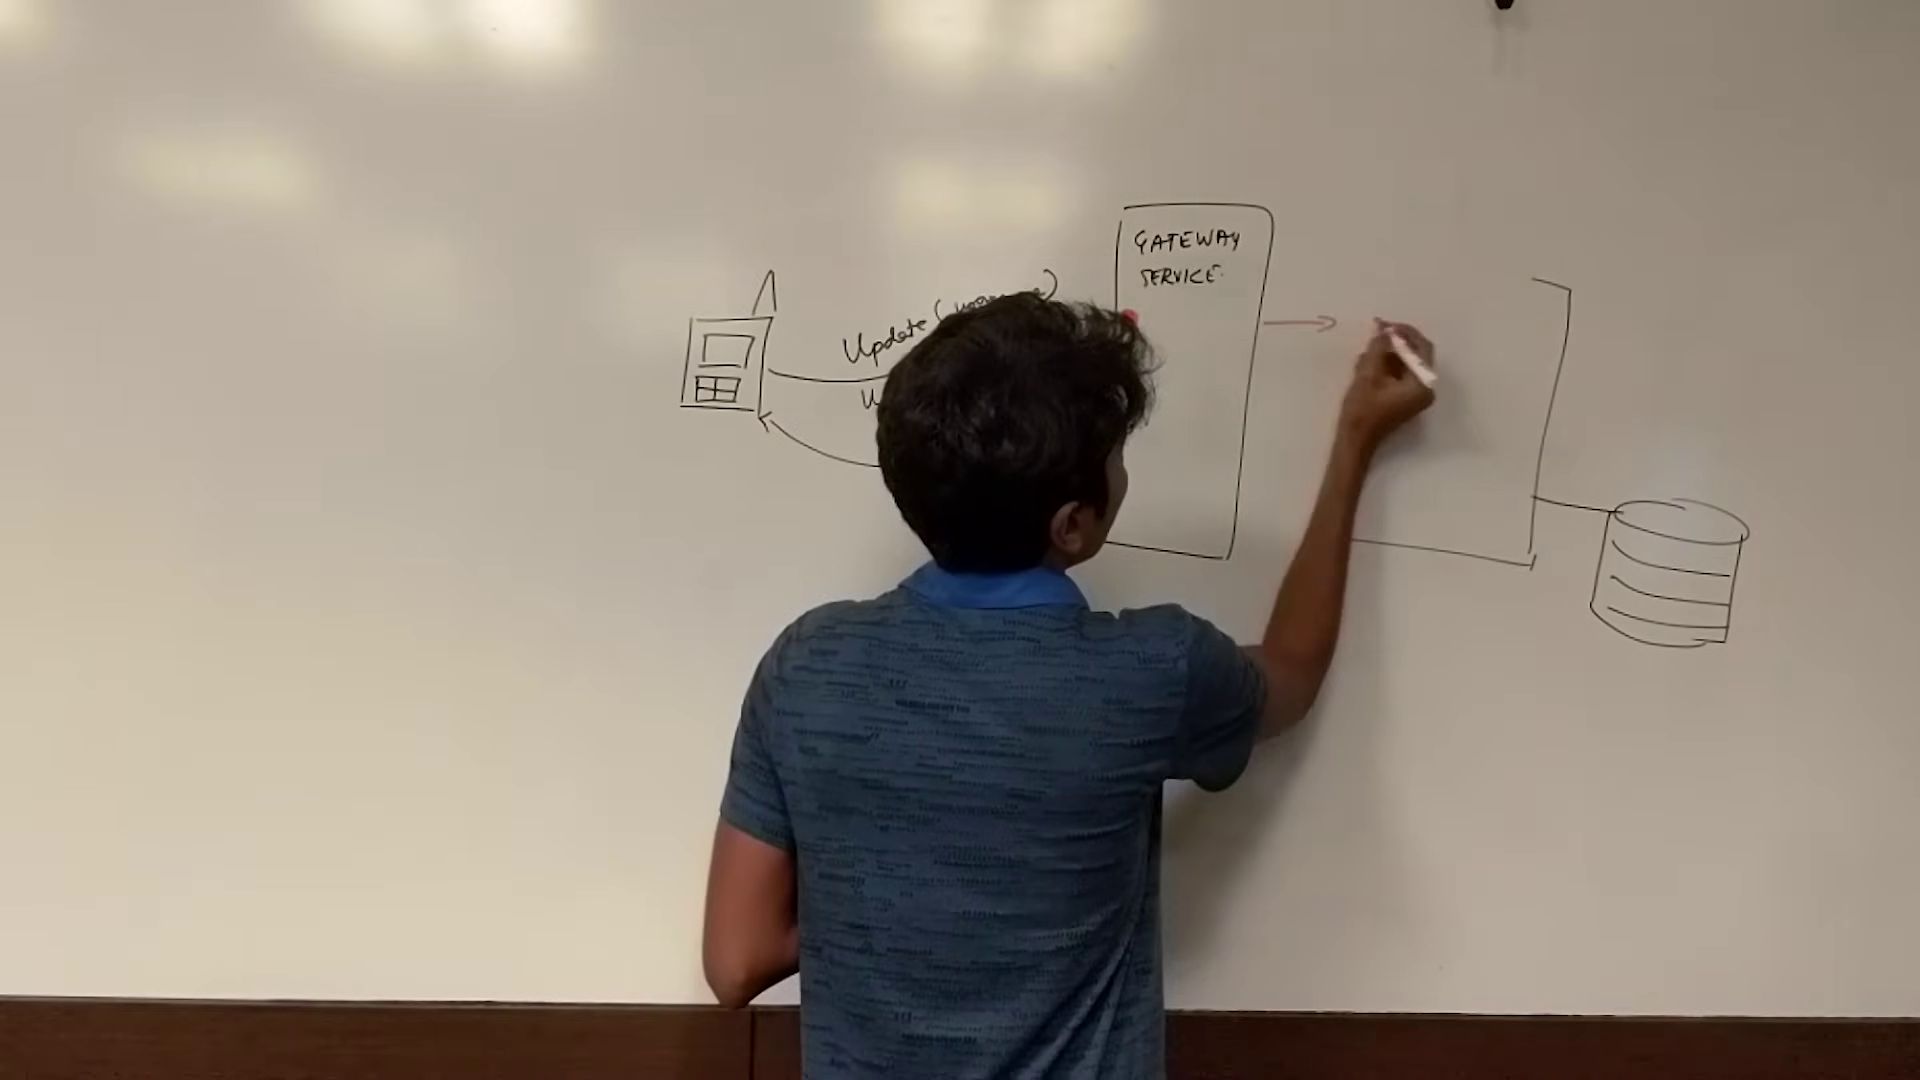 Update (
GATEWAY
SERVICE